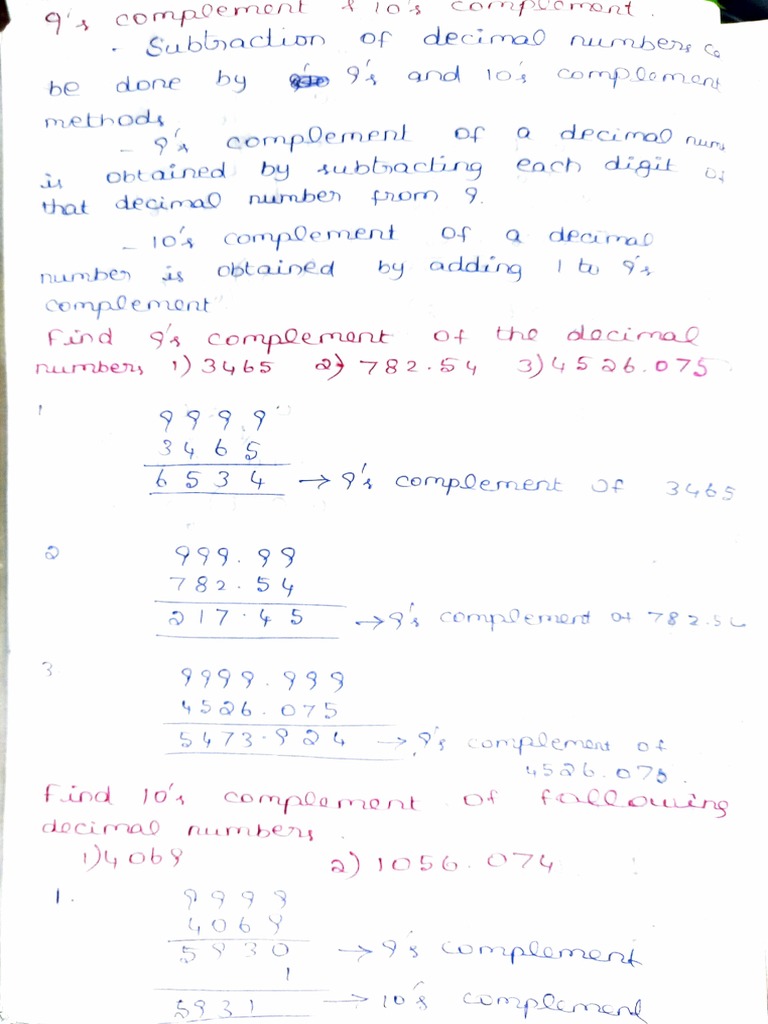 9's complement & 10's complement.
. Subtraction of decimal numbers
be done by 9's and 10's complement
methods
- 9's complement of a decimal num
is obtained by subtracting each digit of
that decimal number from 9.
- 10's complement of a decimal
number is obtained by adding 1 to 9's
complement
Find 9's complement of the decimal
numbers 1) 3465 2) 782.54 3) 4526.075
1
9 9 9 9
3 4 6 5
6 5 3 4 → 9's complement of 3465
2
999.99
782.54
217.45 → 9's complement of 782.54
3
9999.999
4526.075
5473.924 → 9's complement of
4526.075.
Find 10's complement of following
decimal numbers.
1) 4069 2) 1056.074
1.
9 9 9 9
4 0 6 9
5 9 3 0 → 9's complement
1
5931 → 10's complement